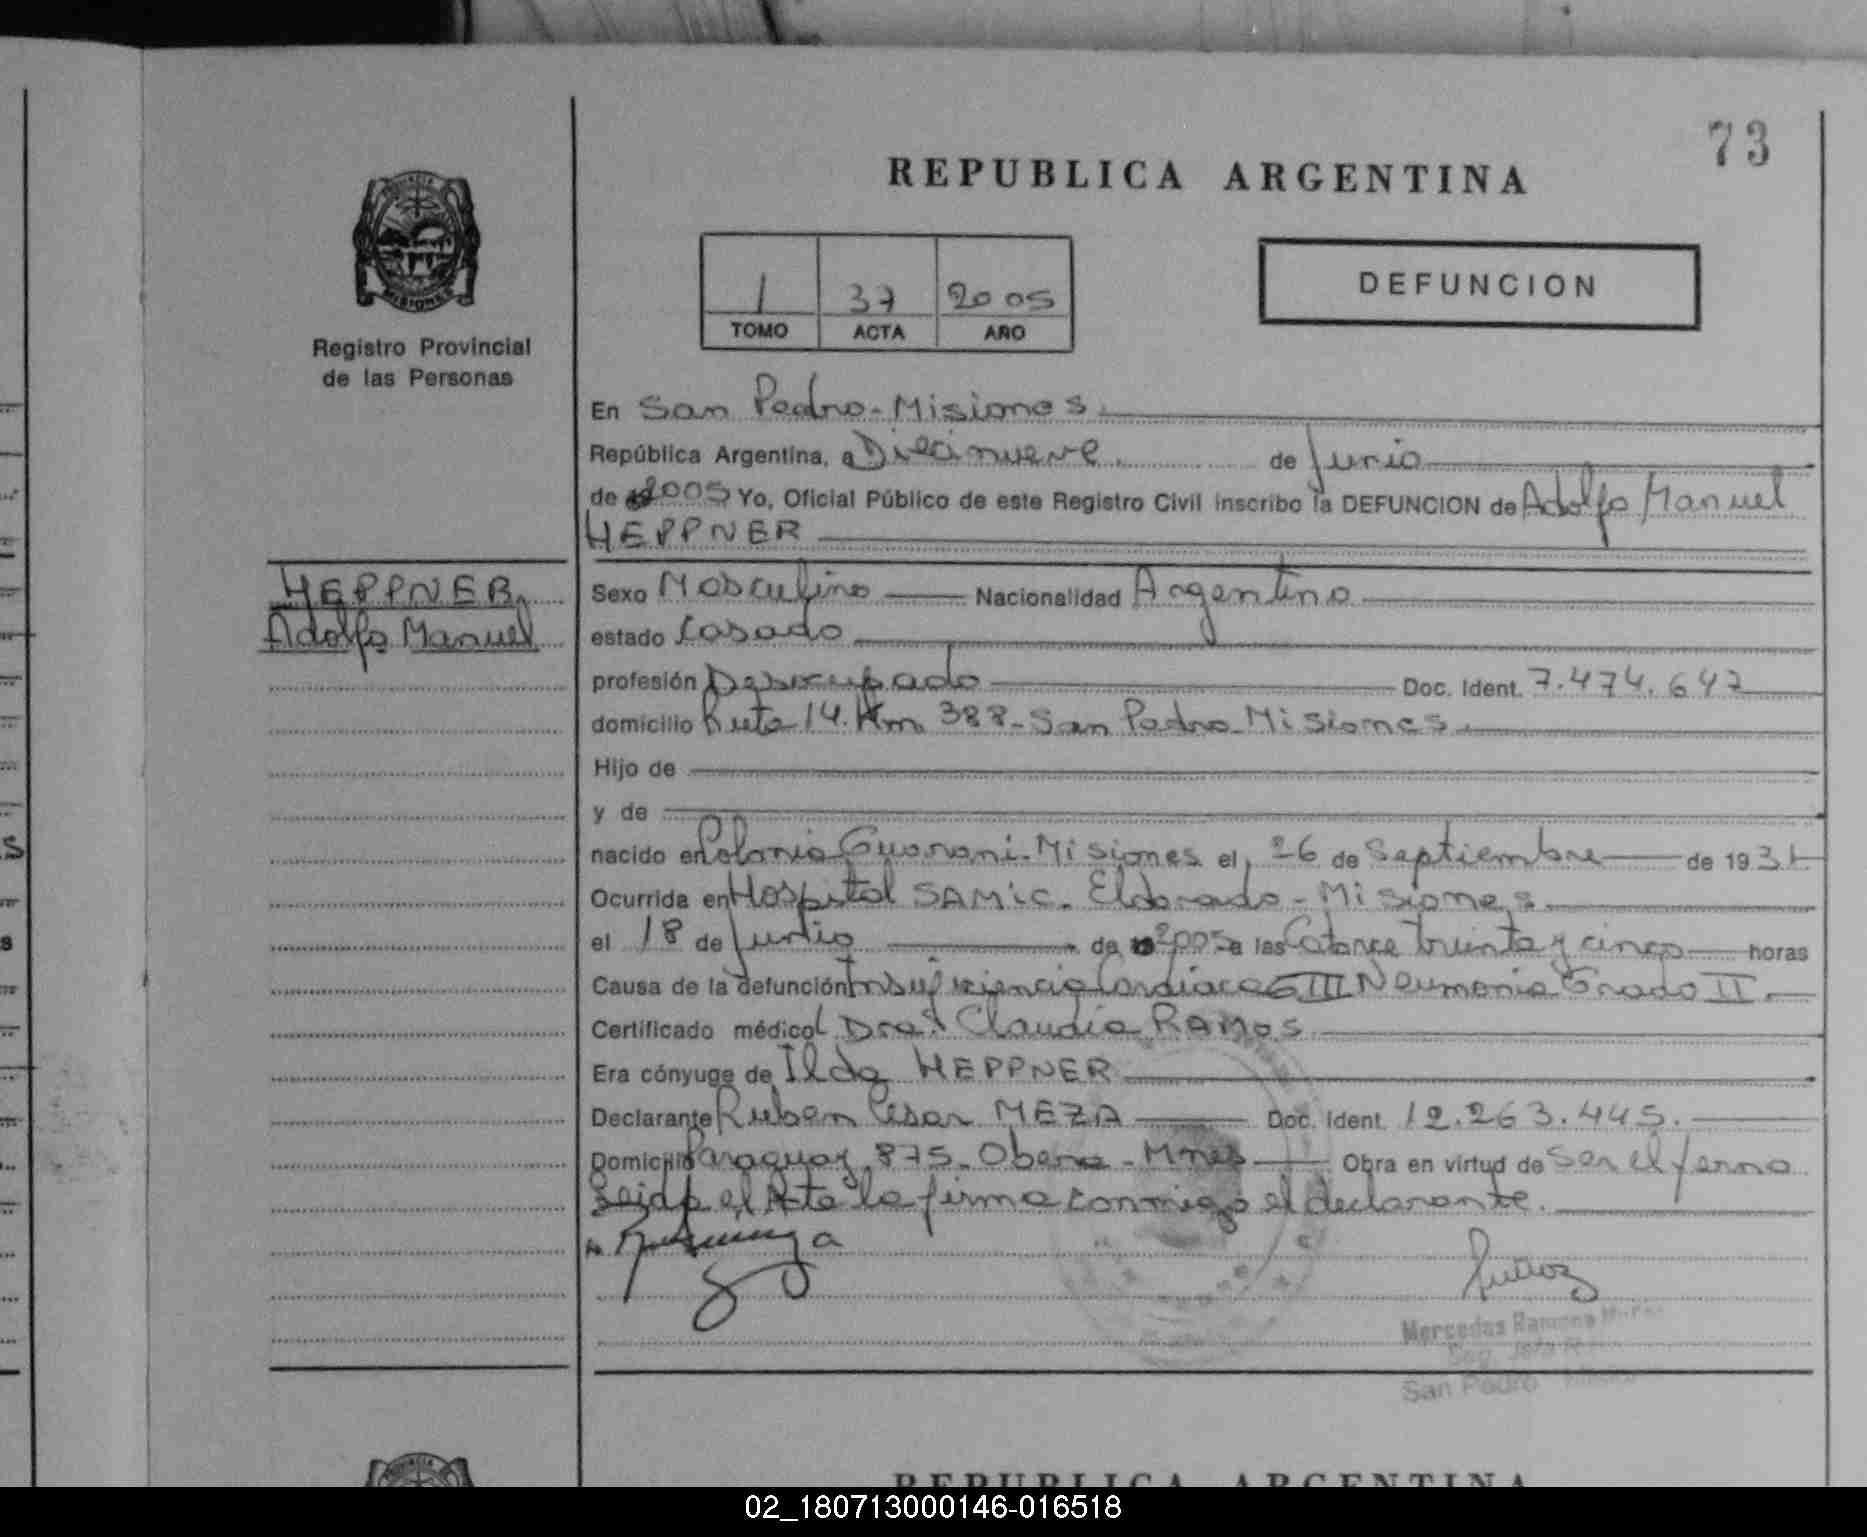 73
REPUBLICA ARGENTINA
PROVINCIA
MISIONES
Registro Provincial
de las Personas
1 37 2005
TOMO ACTA AÑO
DEFUNCION
En San Pedro - Misiones.
República Argentina, a Diecinueve de Junio
de 2005 Yo, Oficial Público de este Registro Civil inscribo la DEFUNCION de Adolfo Manuel
HEPPNER
HEPPNER,
Adolfo Manuel
Sexo Masculino Nacionalidad Argentino
estado Casado
profesión Desocupado Doc. Ident. 7.474.647
domicilio Ruta 14. Km 388 - San Pedro - Misiones.
Hijo de
y de
nacido en Colonia Guarani - Misiones el 26 de Septiembre de 1931
Ocurrida en Hospital SAMIC. Eldorado - Misiones.
el 18 de Junio de 2005 a las Catorce treinta y cinco horas
Causa de la defunción Insuficiencia Cardiaca G III Neumonia Grado II.
Certificado médico Dra. Claudia RAMOS
Era cónyuge de Ilda HEPPNER
Declarante Ruben Cesar MEZA Doc. Ident. 12.263.445.
Domicilio Paraguay 875. Obera - Mnes Obra en virtud de Ser el yerno
Leida el Acta la firma conmigo el declarante.
Mercedes Ramona
San Pedro
REPUBLICA ARGENTINA
02_180713000146-016518